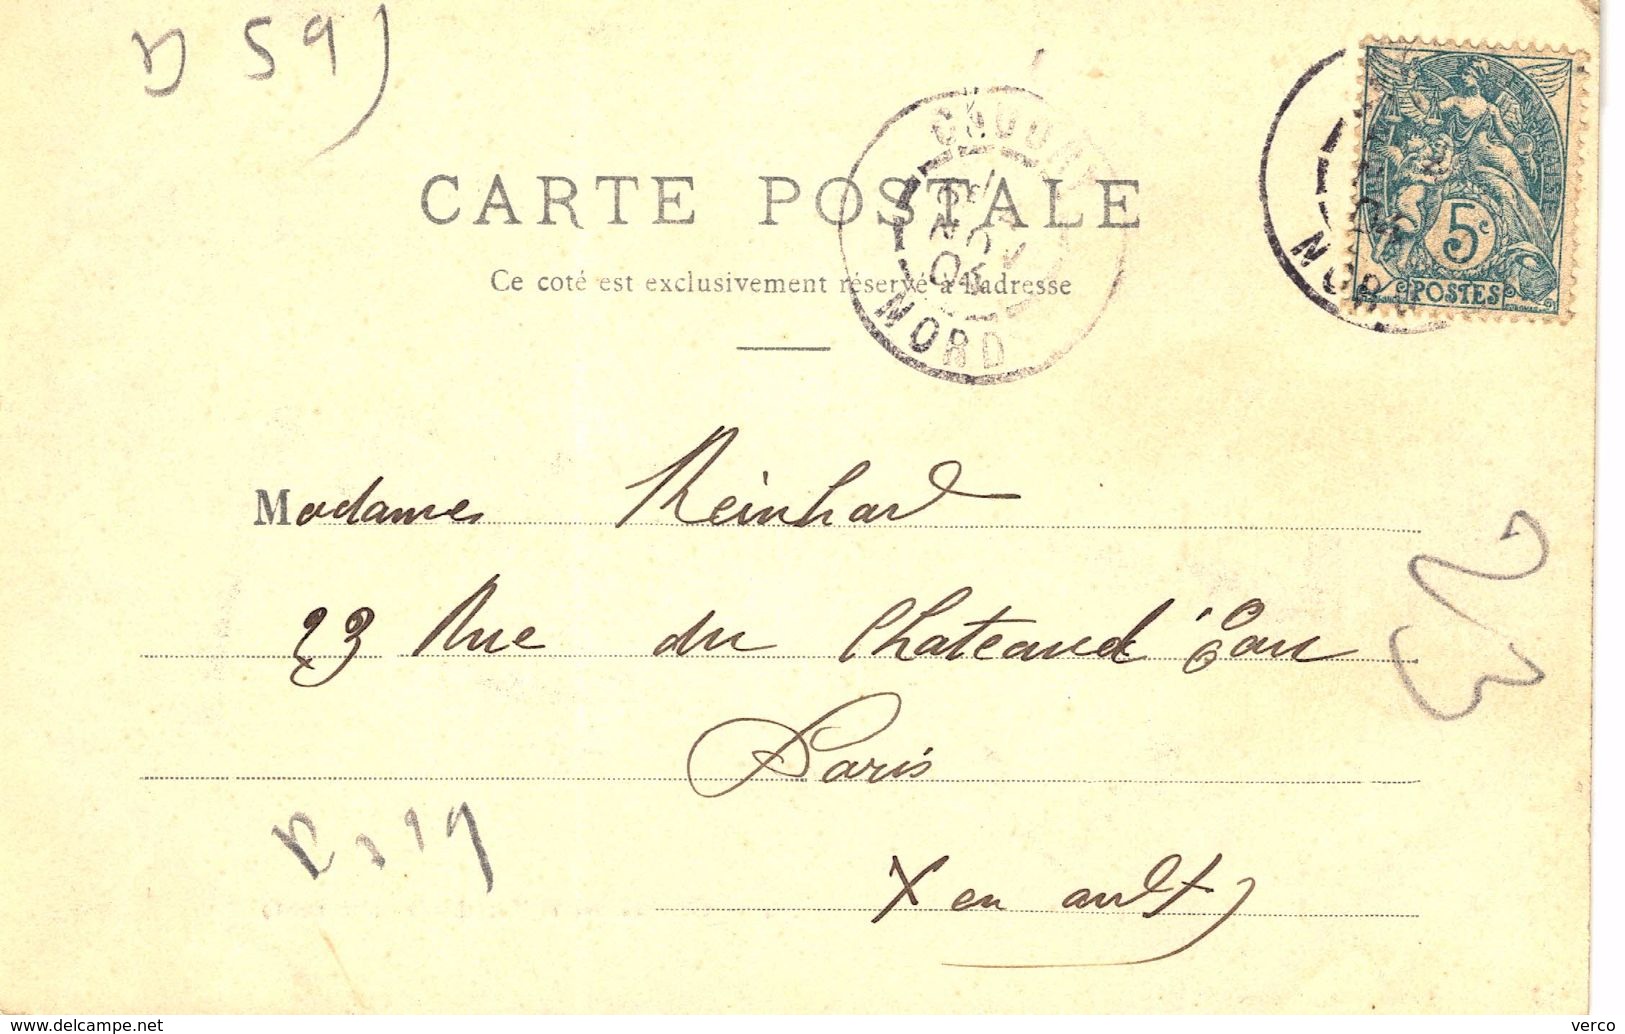 D 59)
CARTE POSTALE
Ce coté est exclusivement réservé à l'adresse
NOV
04
NORD
NORD
5c
POSTES
Madame Reinhard
23 Rue du Chateaud'Eau
Paris
X en ardt
www.delcampe.net
verco